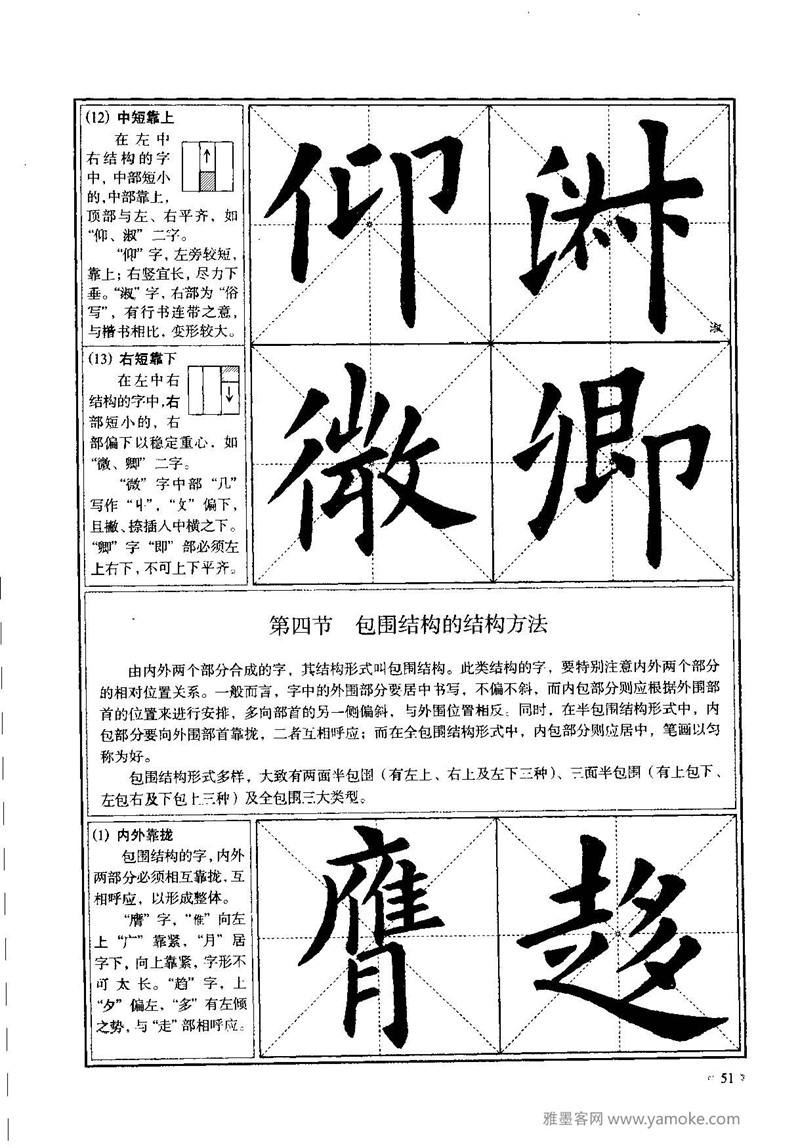 (12) 中短靠上
在左中
右结构的字
中，中部短小
的，中部靠上，
顶部与左、右平齐，如
“仰、淑”二字。
“仰”字，左旁较短，
靠上；右竖宜长，尽力下
垂。“淑”字，右部为“俗
写”，有行书连带之意，
与楷书相比，变形较大。
仰
淑
淑
(13) 右短靠下
在左中右
结构的字中，右
部短小的，右
部偏下以稳定重心，如
“微、卿”二字。
“微”字中部“几”
写作“丩”，“攵”偏下，
且撇、捺插人中横之下。
“卿”字“即”部必须左
上右下，不可上下平齐。
微
卿
第四节 包围结构的结构方法
由内外两个部分合成的字，其结构形式叫包围结构。此类结构的字，要特别注意内外两个部分
的相对位置关系。一般而言，字中的外围部分要居中书写，不偏不斜，而内包部分则应根据外围部
首的位置来进行安排，多向部首的另一侧偏斜，与外围位置相反。同时，在半包围结构形式中，内
包部分要向外围部首靠拢，二者互相呼应；而在全包围结构形式中，内包部分则应居中，笔画以匀
称为好。
包围结构形式多样，大致有两面半包围（有左上、右上及左下三种）、三面半包围（有上包下、
左包右及下包上三种）及全包围三大类型。
(1) 内外靠拢
包围结构的字，内外
两部分必须相互靠拢，互
相呼应，以形成整体。
“膺”字，“倠”向左
上“广”靠紧，“月”居
字下，向上靠紧，字形不
可太长。“趋”字，上
“夕”偏左，“多”有左倾
之势，与“走”部相呼应。
膺
趍
51
雅墨客网 www.yamoke.com